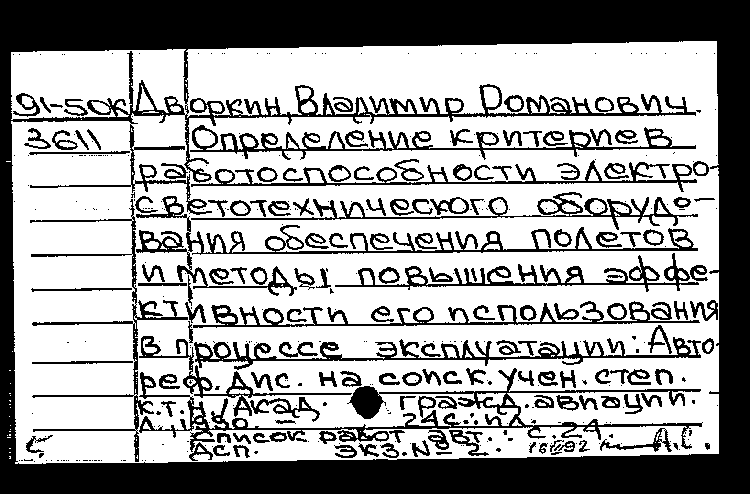 91-50К Дворкин, Владимир Романович.
3611 Определение критериев
работоспособности электро-
светотехнического оборудо-
вания обеспечения полетов
и методы повышения эффе-
ктивности его использования
в процессе эксплуатации: Авто-
реф. дис. на соиск. учен. степ.
к.т.н / Акад. гражд. авиации.
Л., 1990. - 24с.: ил.
Список работ авт.: с. 24.
Дсп. Экз. № 2. А.С.